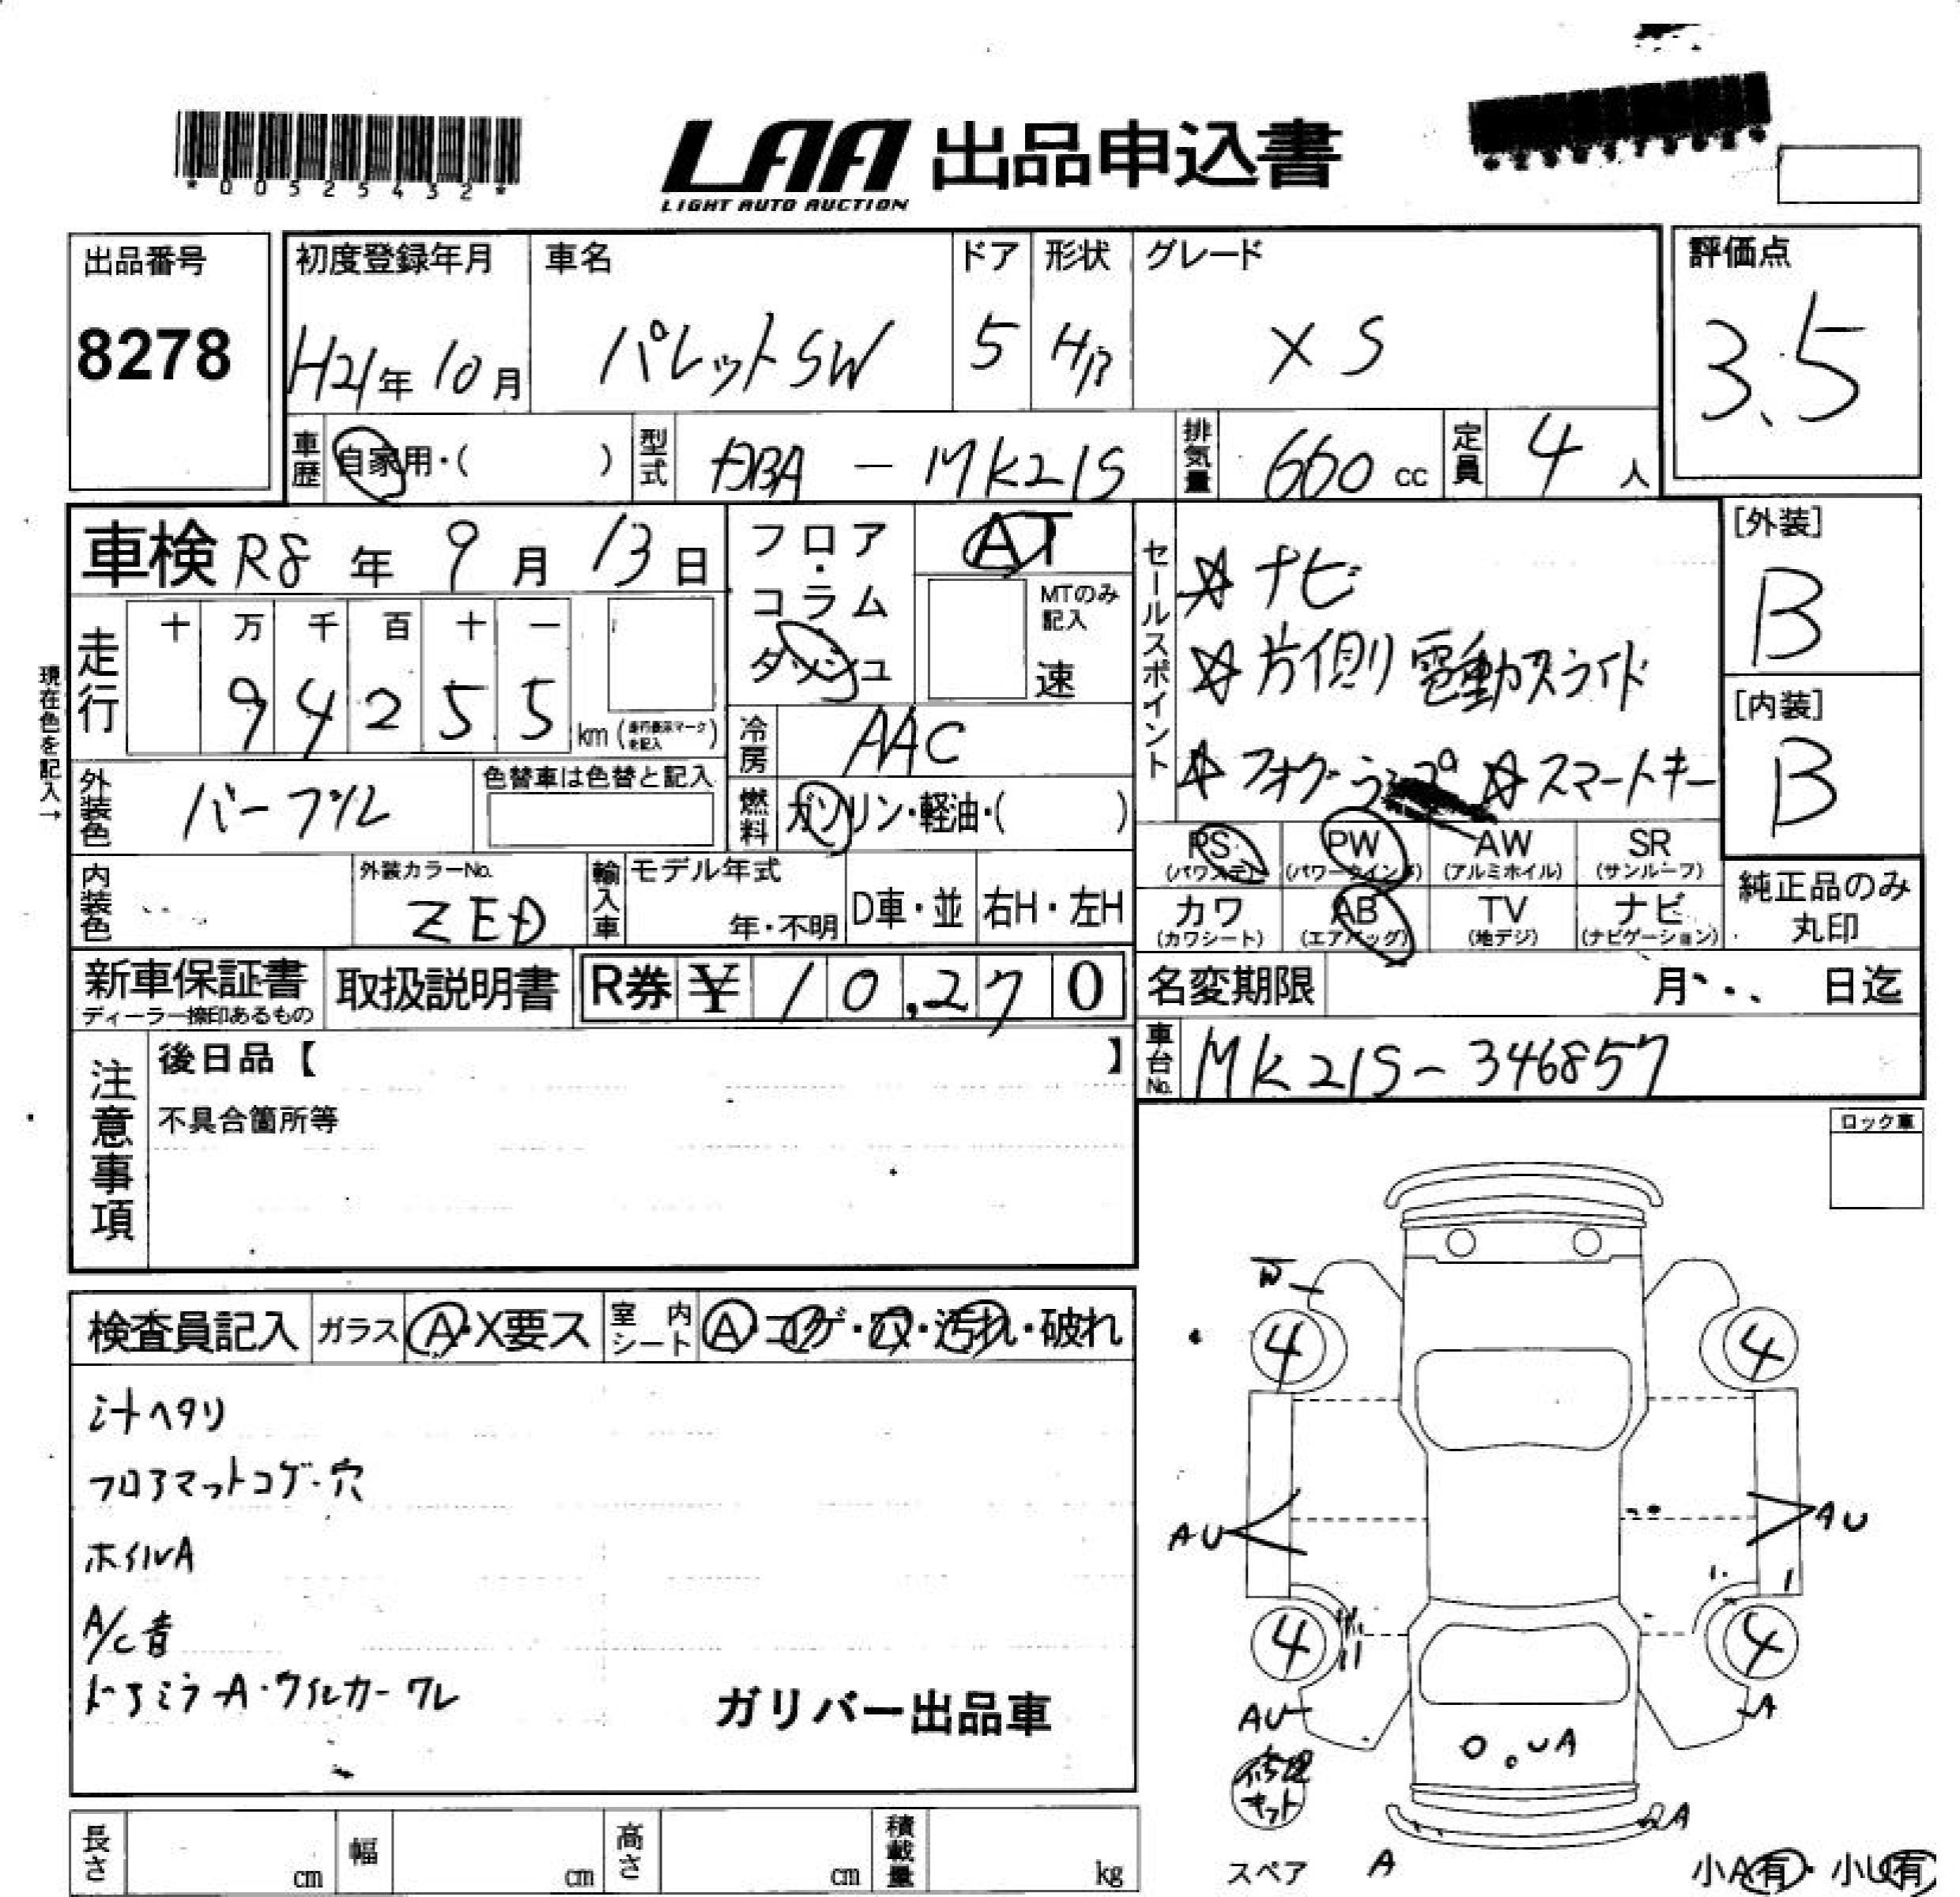 *00525432*
LAA 出品申込書
LIGHT AUTO AUCTION
出品番号 初度登録年月 車名 ドア 形状 グレード 評価点
8278 H21年 10月 パレットSW 5 H/B XS 3.5
車歴 自家用・( ) 型式 DBA - MK21S 排気量 660 cc 定員 4 人
車検 R8 年 9 月 13 日 フロア・コラム AT [外装]
MTのみ記入 セールスポイント ☆ナビ B
走行 十 万 千 百 十 一 ダッシュ 速 ☆片側電動スライド
9 4 2 5 5 km (走行表示マークを記入) [内装]
現在色を記入→
冷房 AAC ☆フォグランプ ☆スマートキー B
外装色 パープル 色替車は色替と記入 燃料 ガソリン・軽油・( )
PS (パワステ) PW (パワーウインド) AW (アルミホイル) SR (サンルーフ) 純正品のみ
内装色 外装カラーNo. ZED 輸入車 モデル年式 年・不明 D車・並 右H・左H
カワ (カワシート) AB (エアバッグ) TV (地デジ) ナビ (ナビゲーション) 丸印
新車保証書 取扱説明書 R券 ¥ 10,270 名変期限 月 日迄
ディーラー捺印あるもの
注意事項 後日品【 】 車台No. MK21S-346857
不具合箇所等 ロック車
検査員記入 ガラス A・X要ス 室内シート A・コゲ・穴・汚れ・破れ
W
4 4
シートヘタリ
フロアマットコゲ・穴
AU AU
ホイルA
A/C音
4 4
ドアミラーA・ウィンカーワレ
ガリバー出品車
AU A
UA
修理キット
A
長さ cm 幅 cm 高さ cm 積載量 kg スペア A 小A有・小U有